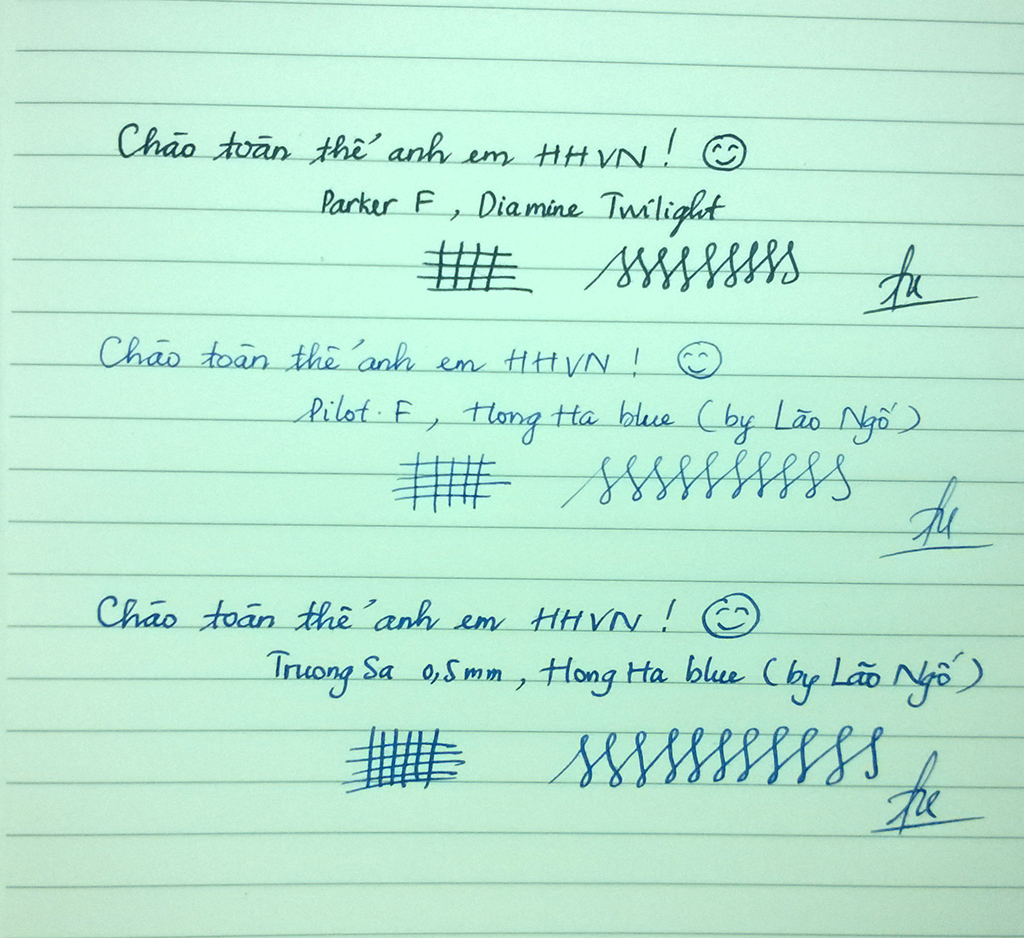 Chào toàn thế anh em HHVN !
Parker F , Diamine Twilight
Chào toàn thế anh em HHVN !
Pilot F , Hong Ha blue (by Lão Ngố)
Chào toàn thế anh em HHVN !
Truong Sa 0,5mm , Hong Ha blue (by Lão Ngố)